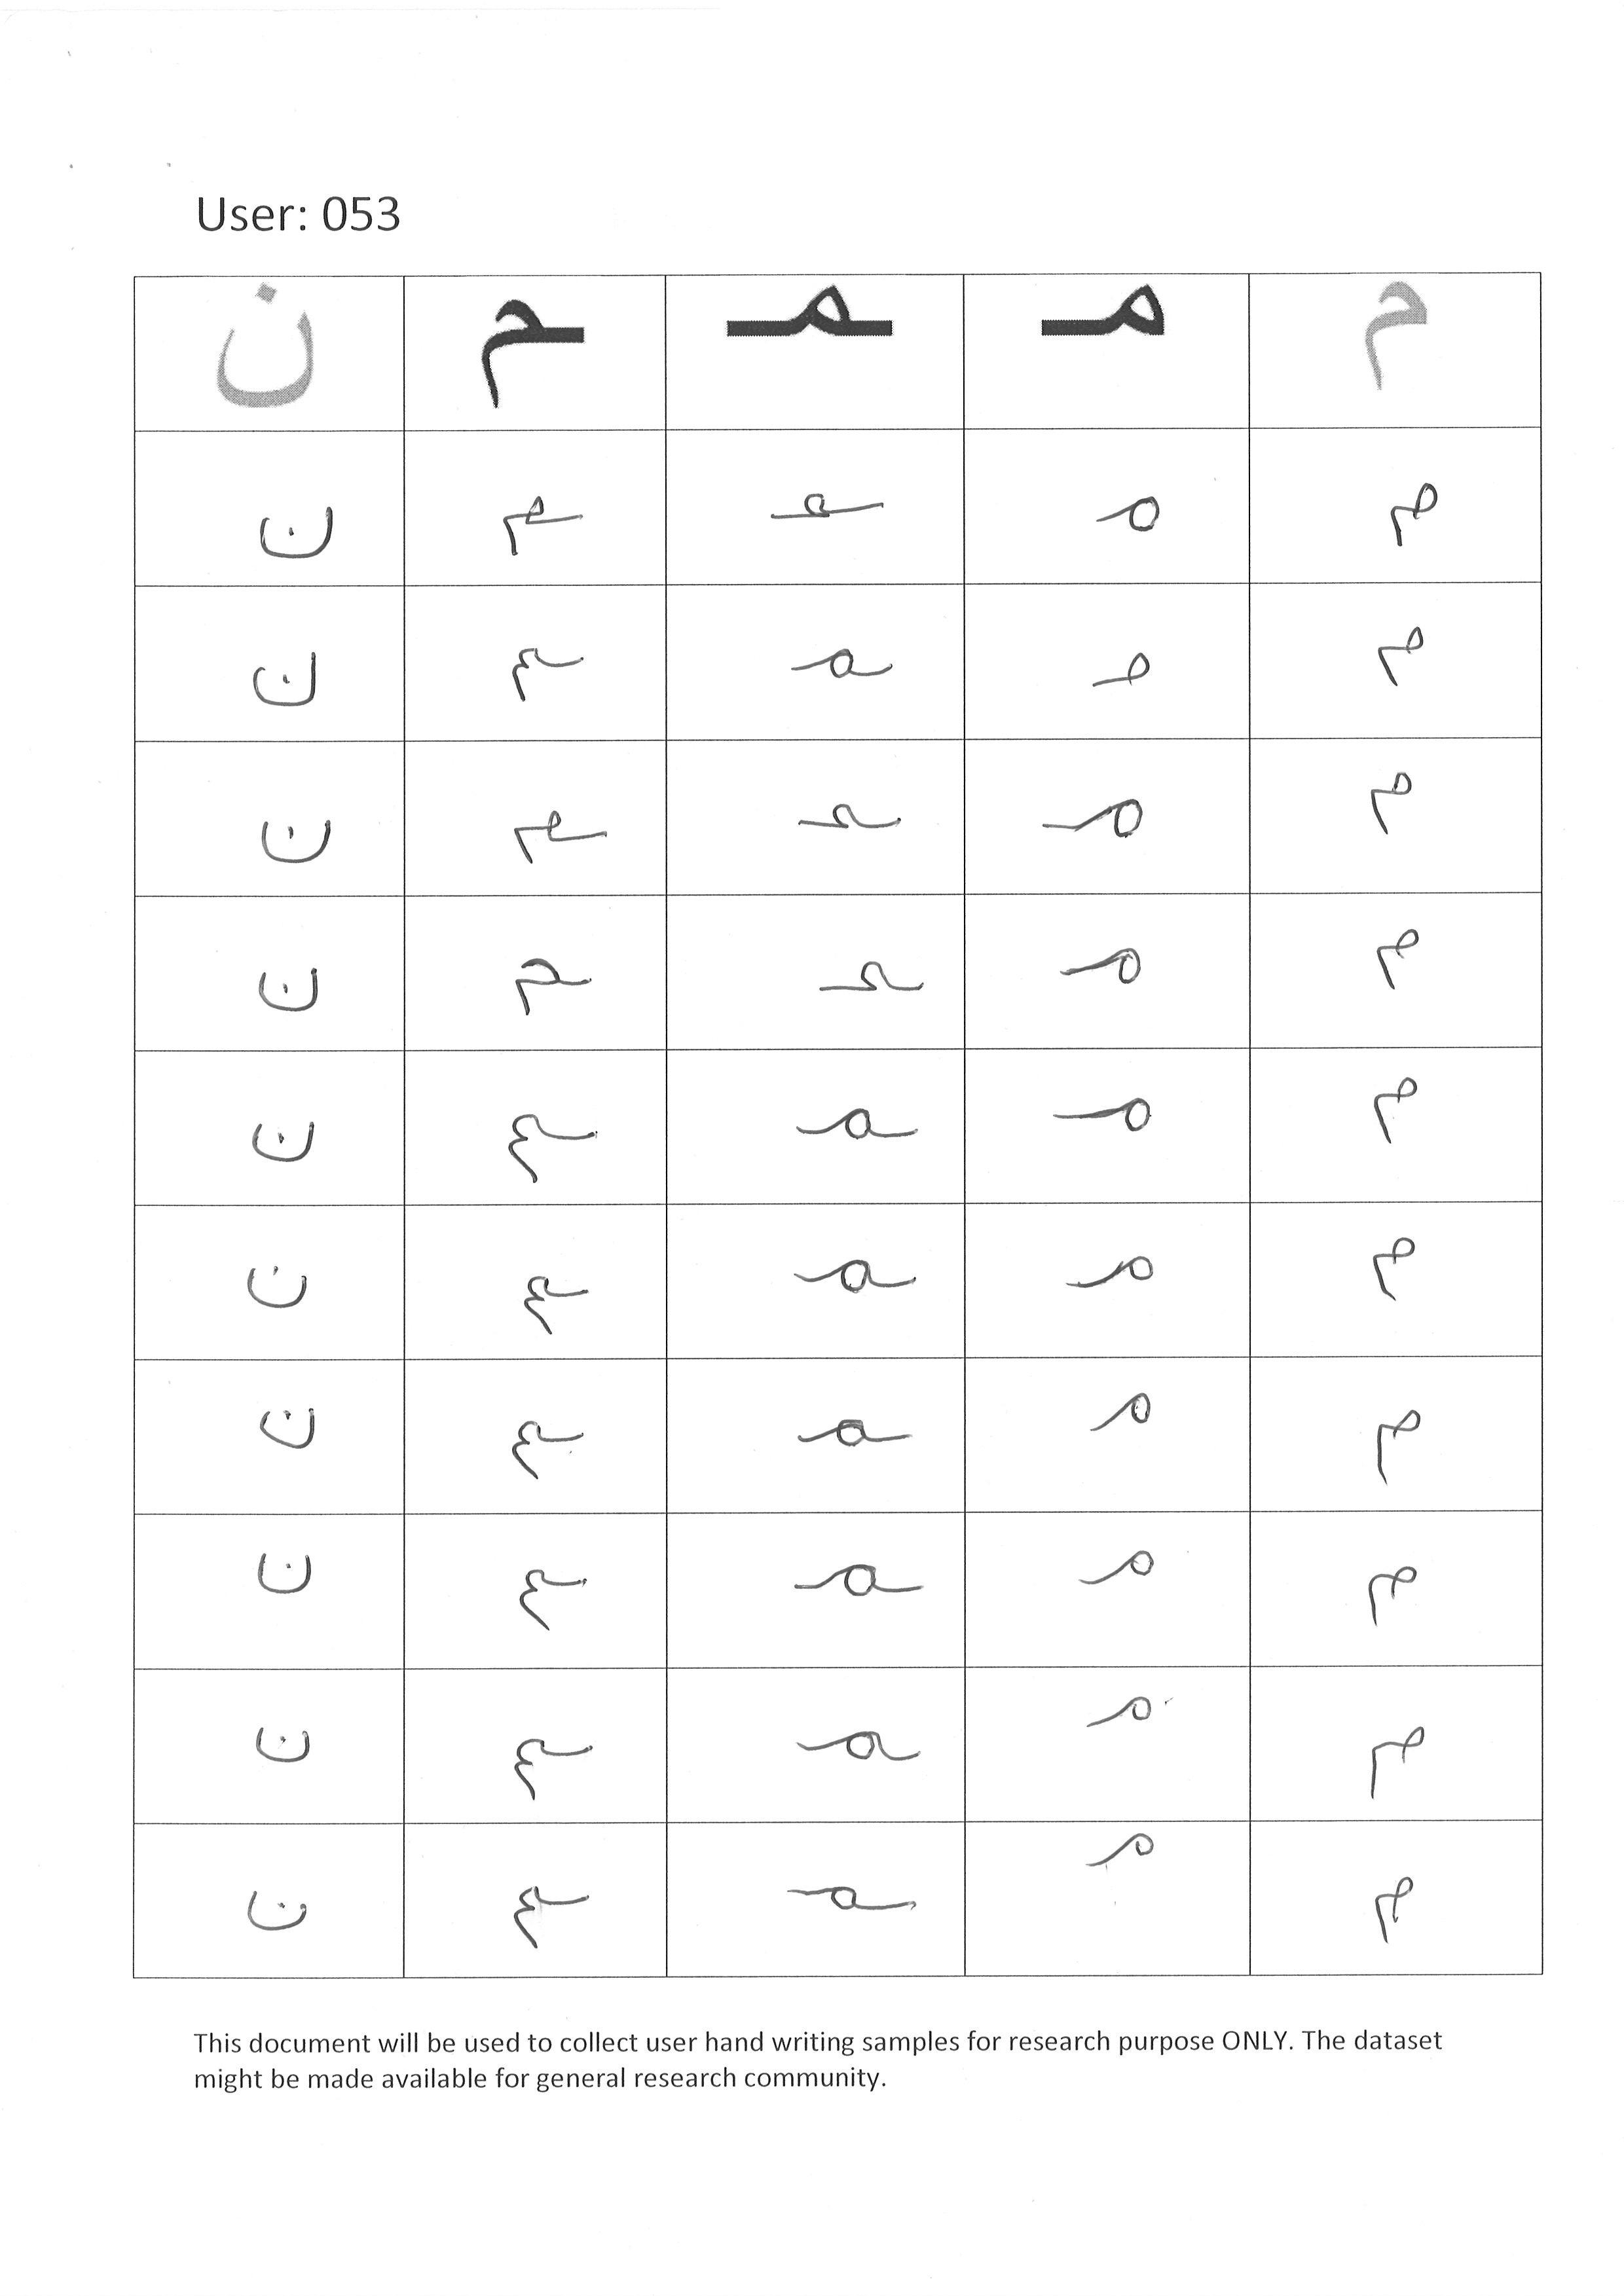 User: 053
م مـ ـمـ ـم ن
م مـ ـمـ ـم ن
م مـ ـمـ ـم ن
م مـ ـمـ ـم ن
م مـ ـمـ ـم ن
م مـ ـمـ ـم ن
م مـ ـمـ ـم ن
م مـ ـمـ ـم ن
م مـ ـمـ ـم ن
م مـ ـمـ ـم ن
م مـ ـمـ ـم ن
This document will be used to collect user hand writing samples for research purpose ONLY. The dataset
might be made available for general research community.